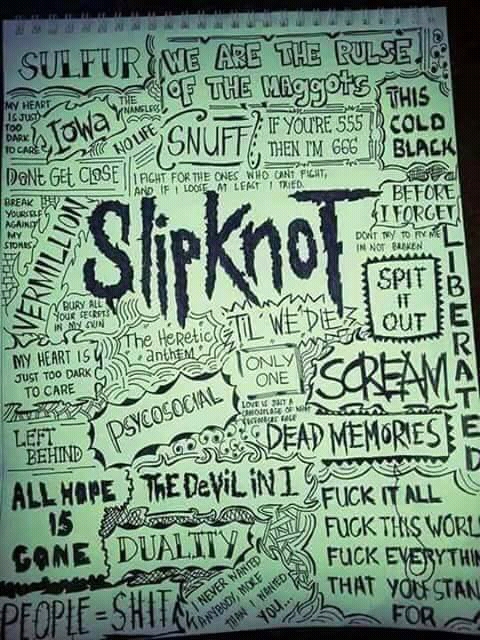 SULFUR
WE ARE THE PULSE
OF THE MAGGOTS
MY HEART
IS JUST
TOO
DARK
TO CARE
Iowa
THE
NAMELESS
NO LIFE
SNUFF
IF YOU'RE 555
THEN I'M 666
THIS
COLD
BLACK
DONT GET CLOSE
I FIGHT FOR THE ONES WHO CANT FIGHT,
AND IF I LOOSE AT LEAST I TRIED.
BEFORE
I FORGET
BREAK
YOURSELF
AGAINST
MY
STONES
VERMILLION
SlipKnoT
DONT TRY TO FIX ME
IM NOT BROKEN
LIBERATED
SPIT
IT
OUT
BURY ALL
YOUR SECRETS
IN MY SKIN
The Heretic
anthem
TIL WE DIE
MY HEART IS
JUST TOO DARK
TO CARE
ONLY
ONE
SCREAM
PSYCOSOCIAL
LOVE IS JUST A
CAMOUFLAGE OF WHAT
RAGE
DEAD MEMORIES
LEFT
BEHIND
ALL HOPE
IS
GONE
THE DeViL iN I
FUCK IT ALL
FUCK THIS WORL
FUCK EVERYTHIN
THAT YOU STAN
FOR
DUALITY
PEOPLE = SHIT
I NEVER WANTED
ANYBODY MORE
THAN I WANTED
YOU...